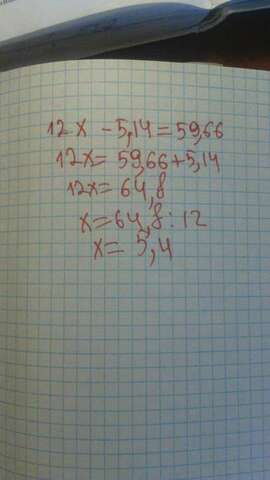 12x - 5,14 = 59,66
12x = 59,66 + 5,14
12x = 64,8
x = 64,8 : 12
x = 5,4